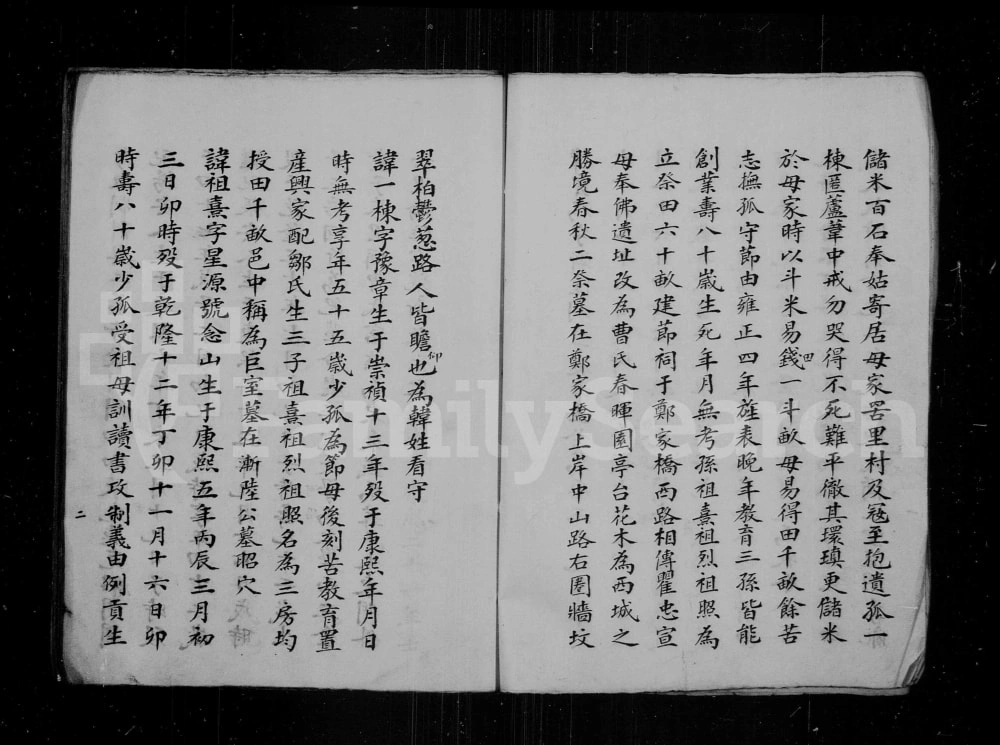 儲米百石奉姑寄居母家罟里村及寇至抱遺孤一
棟匿蘆葦中戒勿哭得不死難平徹其環瑱更儲米
於母家時以斗米易錢田一斗畝母易得田千畝餘苦
志撫孤守節由雍正四年旌表晚年教育三孫皆能
創業壽八十歲生死年月無考孫祖熹祖烈祖照為
立祭田六十畝建節祠于鄭家橋西路相傳瞿忠宣
母奉佛遺址改為曹氏春暉園亭台花木為西城之
勝境春秋二祭墓在鄭家橋上岸中山路右圈牆坟
翠柏鬱葱路人皆瞻仰也為韓姓看守
諱一棟字豫章生于崇禎十三年殁于康熙年月日
時無考享年五十五歲少孤為節母後刻苦教育置
產興家配鄒氏生三子祖熹祖烈祖照名為三房均
授田千畝邑中稱為巨室墓在漸陸公墓昭穴
諱祖熹字星源號念山生于康熙五年丙辰三月初
三日卯時殁于乾隆十二年丁卯十一月十六日卯
時壽八十歲少孤受祖母訓讀書攻制義由例貢生
二
FamilySearch